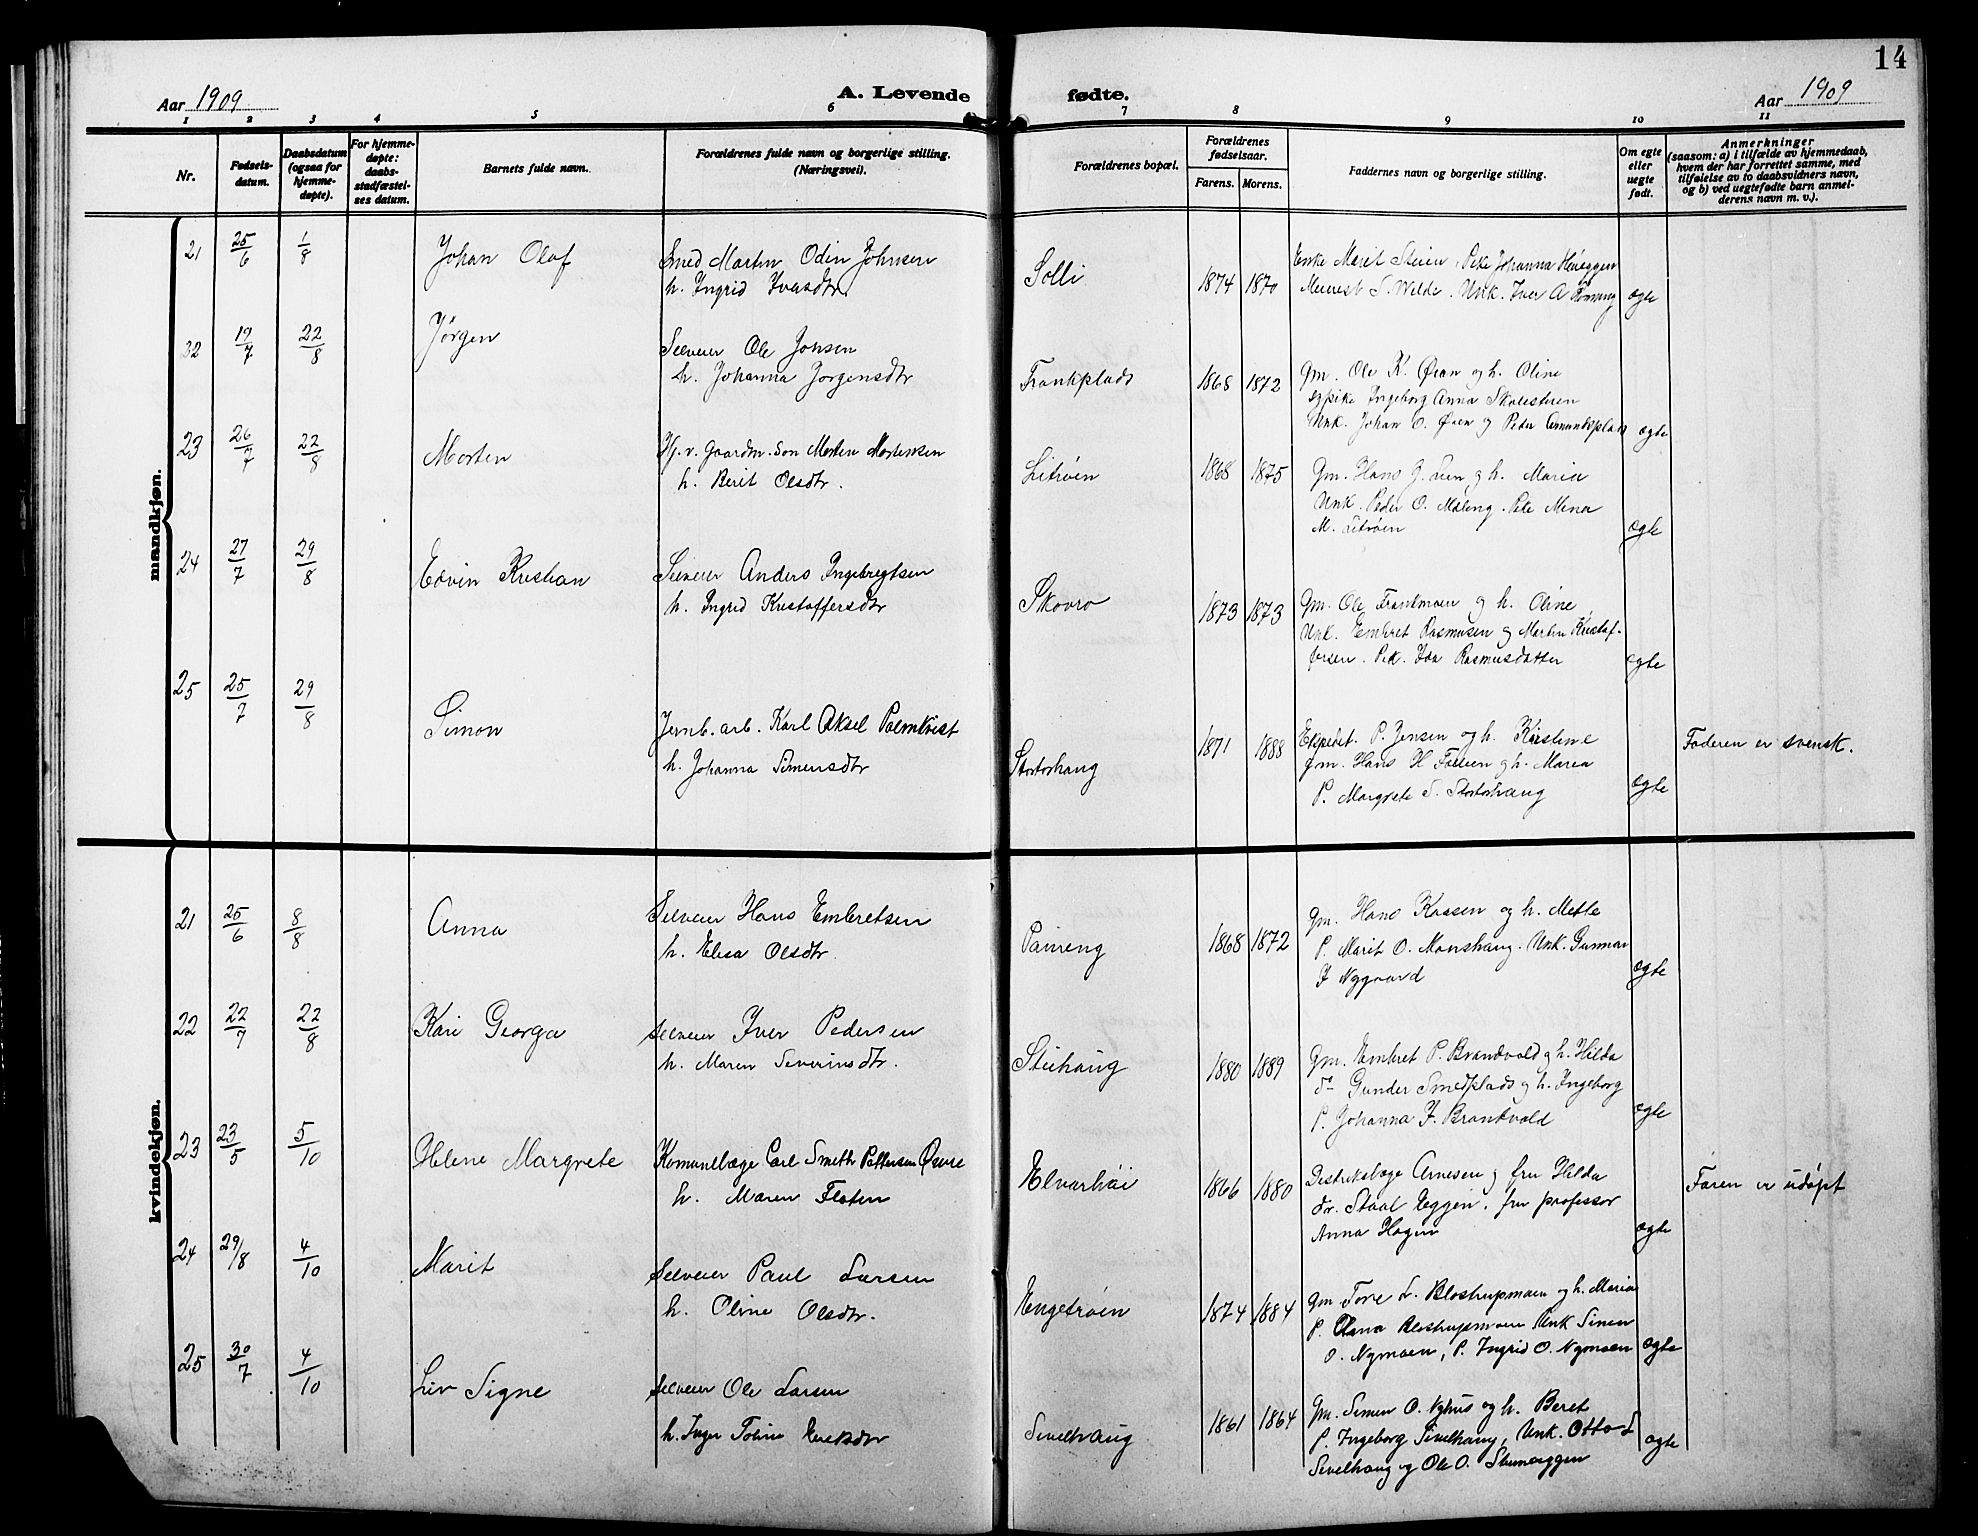 14
Aar 1909
A. Levende fødte.
Aar 1909
1 2 3 4 5 6 7 8 9 10 11
Nr.
Fødsels-
datum.
Daabsdatum
(ogsaa for
hjemme-
døpte).
For hjemme-
døpte:
daabs-
stadfæstel-
ses datum.
Barnets fulde navn.
Forældrenes fulde navn og borgerlige stilling.
(Næringsvei).
Forældrenes bopæl.
Forældrenes
fødselsaar.
Farens. Morens.
Faddernes navn og borgerlige stilling.
Om egte
eller
uegte
født.
Anmerkninger
(saasom: a) i tilfælde av hjemmedaab,
hvem der har forrettet samme, med
tilføielse av to daabsvidners navn,
og b) ved uegtefødte barn anmel-
derens navn m. v.).
mandkjøn.
21 25/6 1/8 Johan Olaf
Smed Martin Odin Johnsen
h. Ingrid Iversdtr.
Solli 1874 1870
Enke Marit Steien. Pike Johanna
S. Wilde. Unk. Iver A
egte
32 19/7 22/8 Jørgen
Selveier Ole Jonsen
h. Johanna Jørgensdtr
Trankplads 1868 1872
Gm. Ole K. Øian og h. Oline
Ingeborg Anna
Unk. Johan O. Øien og Peder
egte
23 26/7 22/8 Morten
Hj. v. gaardm. søn Morten Mortensen
h. Berit Olsdtr.
Litrøen 1868 1875
Gm. Hans J. Lien og h. Maria
Unk. Peder O. Moleng. Pike Mina
M. Litrøen
egte
24 27/7 29/8 Edvin Kristian
Selveier Anders Ingebregtsen
h. Ingrid Kristoffersdtr
Skovro 1873 1873
Gm. Ole Trankmoen og h. Oline
Unk. Embret Rasmusen og Martin Kristof-
fersen. Pik. Ida Rasmusdatter
egte
25 25/7 29/8 Simon
Jernb. arb. Karl Aksel Palmkvist
h. Johanna Simensdtr
Stortrhaug 1871 1888
Ekspedit. P. Jensen og h. Kristine
gm. Hans H og h. Maria
P. Margrete S. Stortrhaug
egte
Faderen er svensk.
kvindekjøn.
21 25/6 8/8 Anna
Selveier Hans Embretsen
h. Elisa Olsdtr.
1868 1872
Gm. Hans Kaasen og h. Mette
P. Marit O. Monshaug. Unk. Gunnar
J Nygaard
egte
22 22/7 22/8 Kari Georga
Selveier Iver Pedersen
h. Maren Severinsdtr.
Stuhaug 1880 1889
Gm. Embret P. Brandvold og h. Hilda
do Gunder Smedplads og h. Ingeborg
P. Johanna J. Brandvold
egte
23 23/5 5/10 Helene Margrete
Komunelæge Carl Smeth Pettersen Øvre
h. Maren Floten
Elvarhøi 1866 1880
Distriktslæge Arnesen og fru Hilda
dr. Staal Eggen, fru professor
Anna Hagen
egte
Faren er udøpt
24 29/8 4/10 Marit
Selveier Paul Larsen
h. Oline Olsdtr.
Engetrøen 1874 1884
Gm Tore L. Blostrupmoen og h. Maria
P. Blostrupmoen Unk Simen
O. Nymoen, P. Ingrid O. Nymoen
egte
25 30/7 4/10 Liv Signe
Selveier Ole Larsen
h. Inger Toline Eriksdtr
Sivilhaug 1861 1864
Gm. Simen O. Nyhus og h. Beret
P. Ingeborg Sivilhaug, Unk. Otto O
Sivilhaug og Ole O.
egte